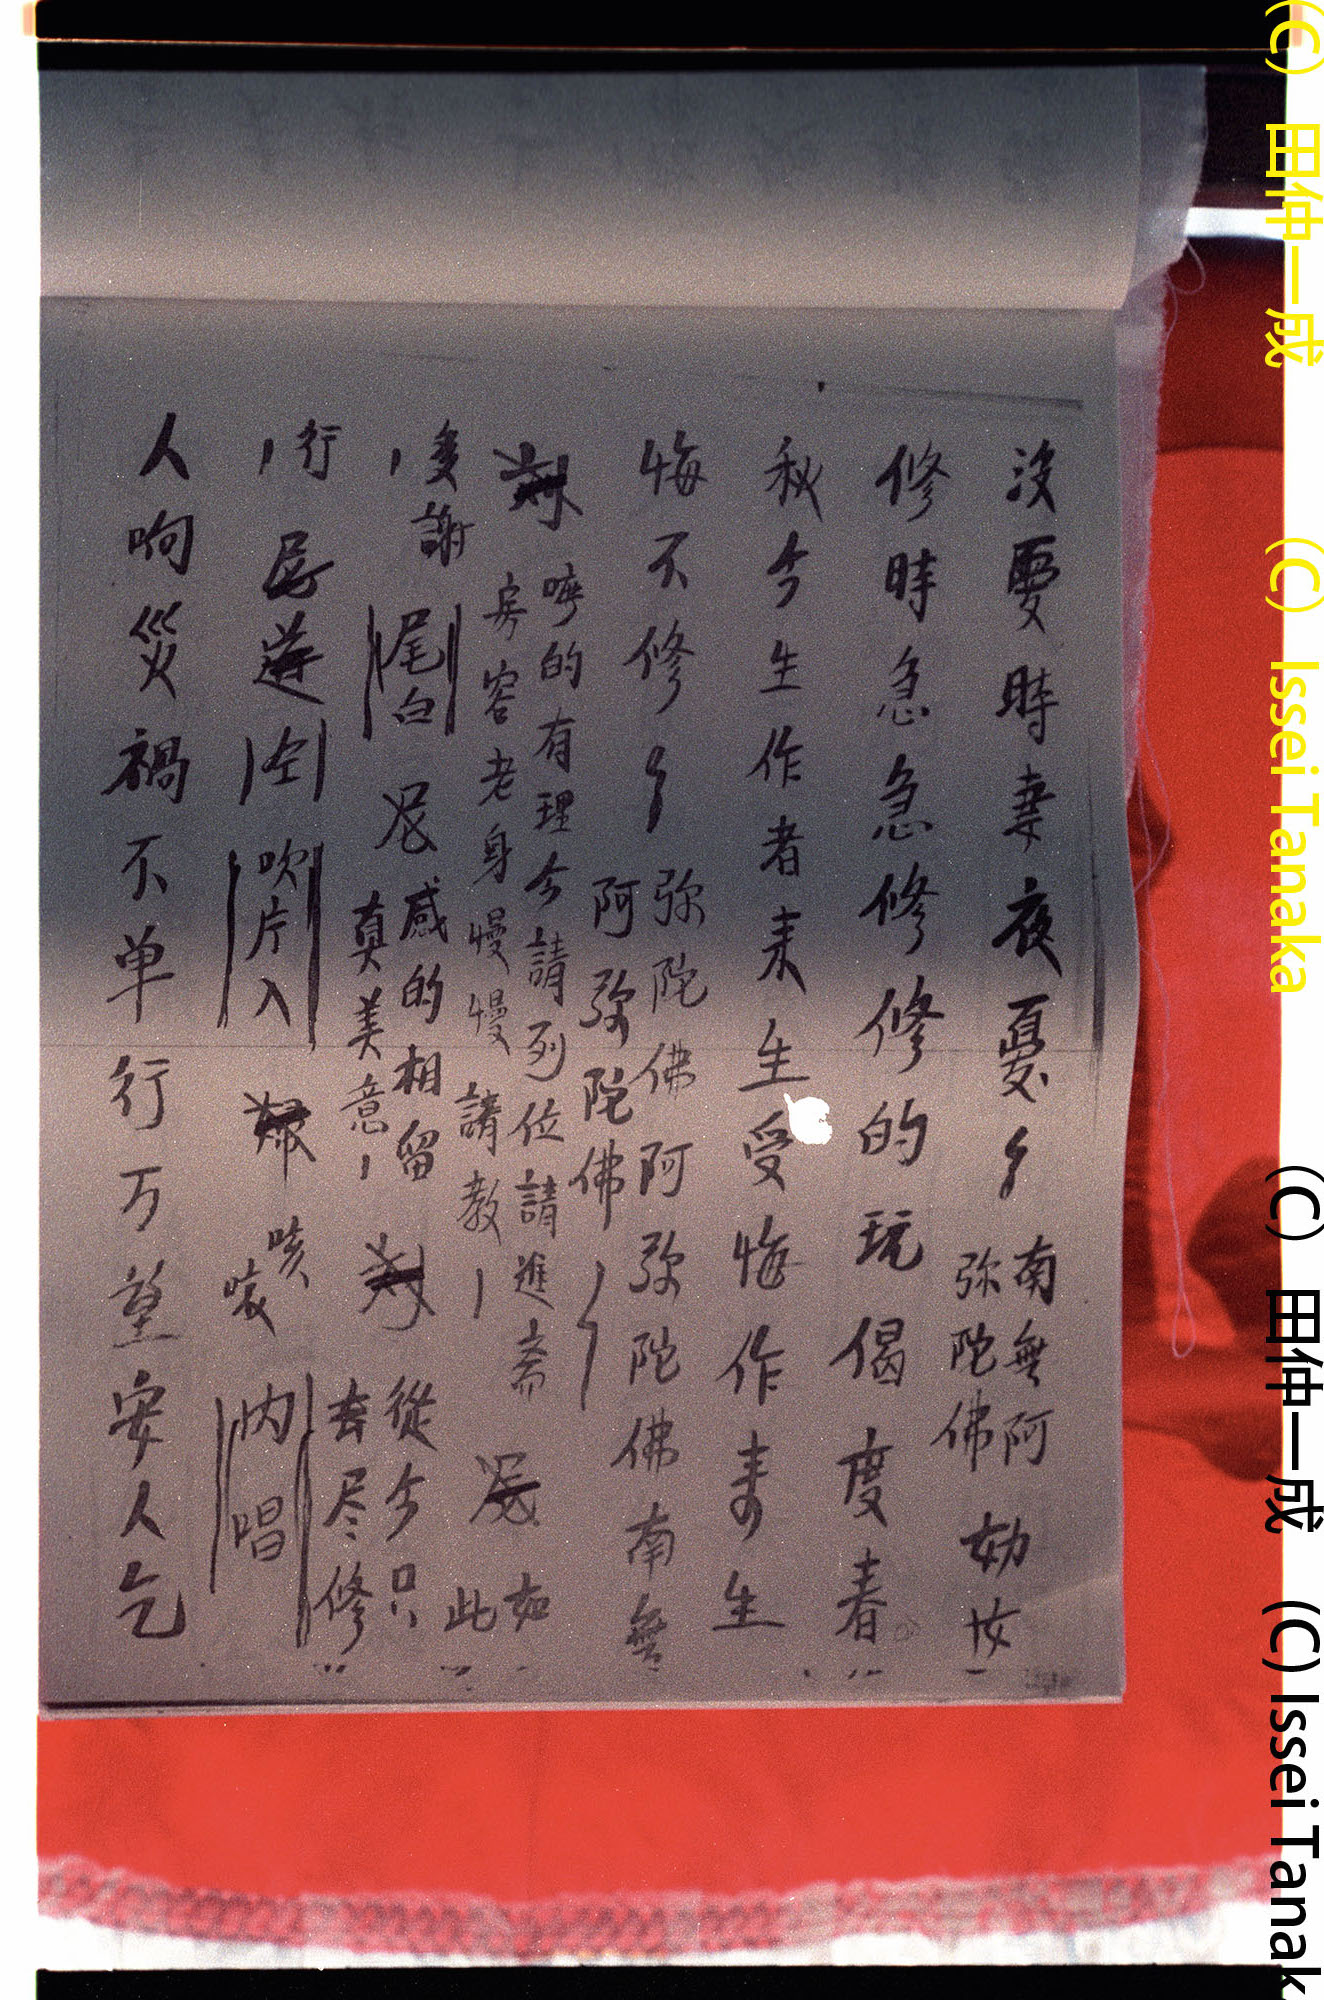 没要時妻夜憂〻南無阿
弥陀佛
妆
修時急急修修的玩偈度春
秋今生作者来生受悔作来生
悔不修〻弥陀佛阿弥陀佛南無
阿弥陀佛
的有理今請列位請進斋
房容老身慢慢請教
尼如
此
多謝
尾白
尼感的相留
真美意
從今只
去尽修
行
吹片入
咳
咳
内唱
人响災禍不单行万望安人乞
(C) 田仲一成 (C) Issei Tanaka
(C) 田仲一成 (C) Issei Tanak